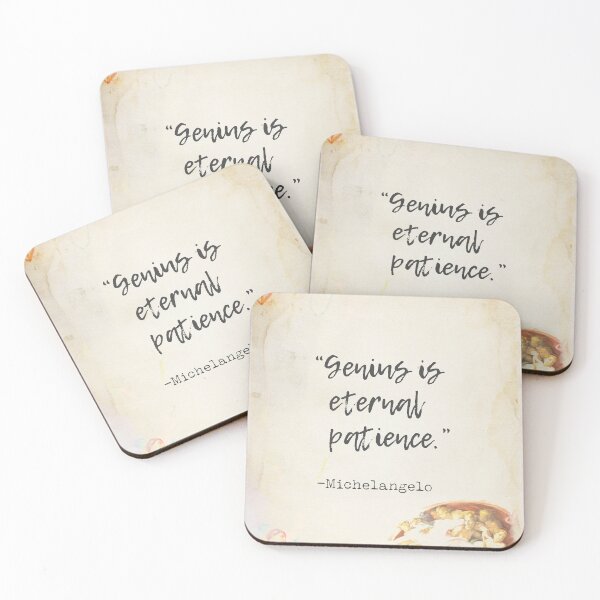 “Genius is
eternal
ce.”
“Genius is
eternal
patience.”
“Genius is
eternal
patience.”
-Michelangelo
“Genius is
eternal
patience.”
-Michelangelo